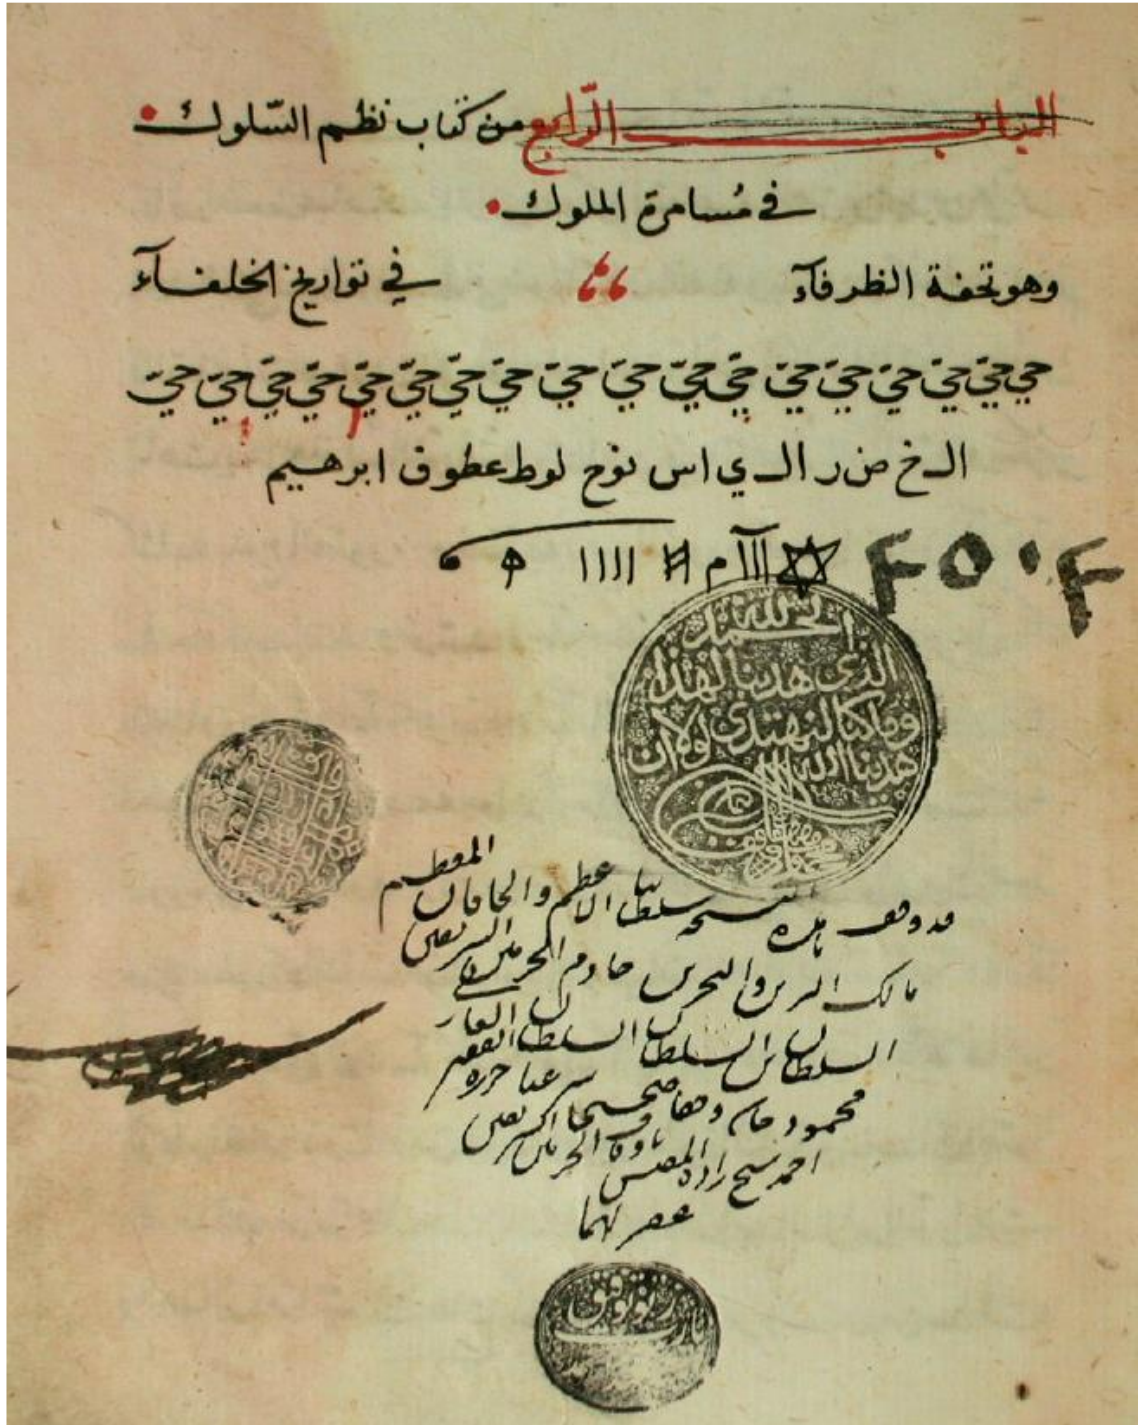 الباب الرّابع من كتاب نظم السّلوك
في مُسامرة الملوك
وهو تحفة الظرفآء في تواريخ الخلفآء
حيّ حيّ حيّ حيّ حيّ حيّ حيّ حيّ حيّ حيّ حيّ حيّ حيّ حيّ حيّ حيّ حيّ حيّ
الـ خ ض ر الـ ي ا س نوح لوط عطوف ابرهيم
٤٥٠٤
الحمد لله
الذي هدينا لهذا
وما كنا لنهتدي لولا ان
هدينا الله
قد وقف هذه النسخة سلطاننا الاعظم والخاقان المعظم
مالك البرين والبحرين خادم الحرمين الشريفين
السلطان بن السلطان السلطان الغازي
محمود خان وقفا صحيحا شرعيا حرره الفقير
احمد شيخ زاده المفتش باوقاف الحرمين الشريفين
غفر لهما